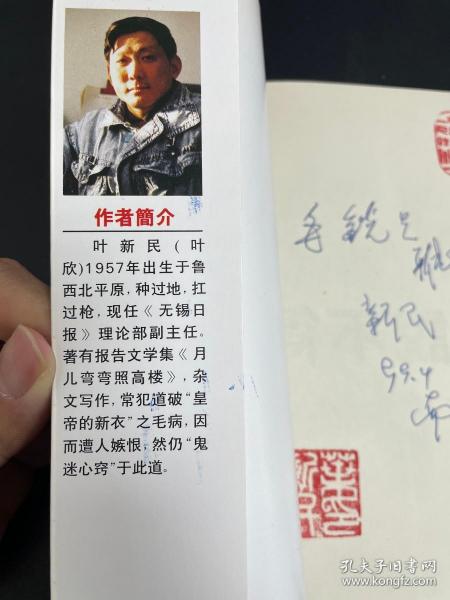 作者簡介
叶新民(叶
欣)1957年出生于鲁
西北平原，种过地，扛
过枪，现任《无锡日
报》理论部副主任。
著有报告文学集《月
儿弯弯照高楼》，杂
文写作，常犯道破“皇
帝的新衣”之毛病，因
而遭人嫉恨，然仍“鬼
迷心窍”于此道。
兄
新民
孔夫子旧书网
www.kongfz.com